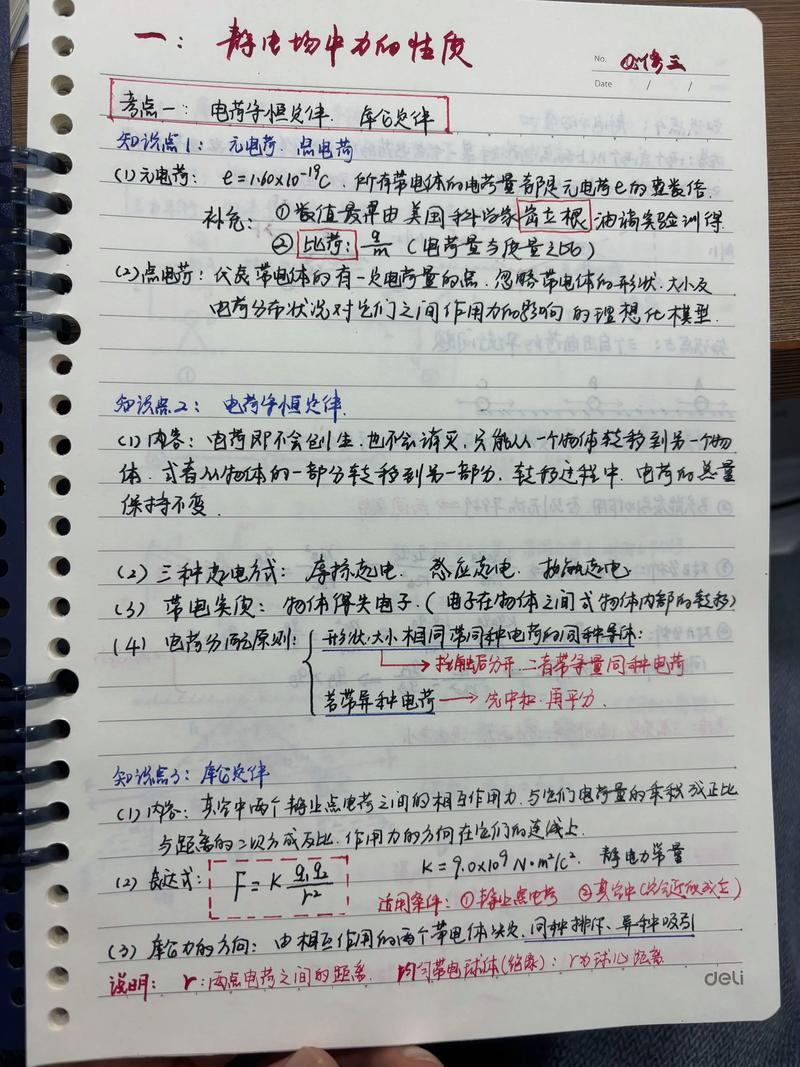 一: 静电场中力的性质
No. 必修三
Date / /
考点一: 电荷守恒定律. 库仑定律
知识点1: 元电荷. 点电荷
(1) 元电荷: e=1.60×10⁻¹⁹C. 所有带电体的电荷量都是元电荷e的整数倍.
补充: ①数值最早由美国科学家密立根油滴实验测得.
② 比荷: q/m (电荷量与质量之比)
(2) 点电荷: 代表带电体的有一定电荷量的点. 忽略带电体的形状.大小及
电荷分布状况对它们之间作用力的影响的理想化模型.
知识点2: 电荷守恒定律.
(1) 内容: 电荷即不会创生. 也不会消灭, 只能从一个物体转移到另一个物
体. 或者从物体的一部分转移到另一部分, 转移过程中. 电荷的总量
保持不变.
(2) 三种起电方式: 摩擦起电. 感应起电. 接触起电
(3) 带电实质: 物体得失电子. (电子在物体之间或物体内部的转移)
(4) 电荷分配原则: 形状.大小相同带同种电荷的同种导体:
接触后分开. 二者带等量同种电荷
若带异种电荷 → 先中和.再平分.
知识点3: 库仑定律
(1) 内容: 真空中两个静止点电荷之间的相互作用力.与它们电荷量的乘积成正比
与距离的二次方成反比. 作用力的方向在它们的连线上.
(2) 表达式: F=K q₁q₂/r² K=9.0×10⁹ N·m²/C². 静电力常量
适用条件: ①静止点电荷 ②真空中(空气近似成立)
(3) 库仑力的方向: 由相互作用的两个带电体决定. 同种排斥、异种吸引
说明: r: 两点电荷之间的距离. 均匀带电球体(绝缘): r为球心距离
deli